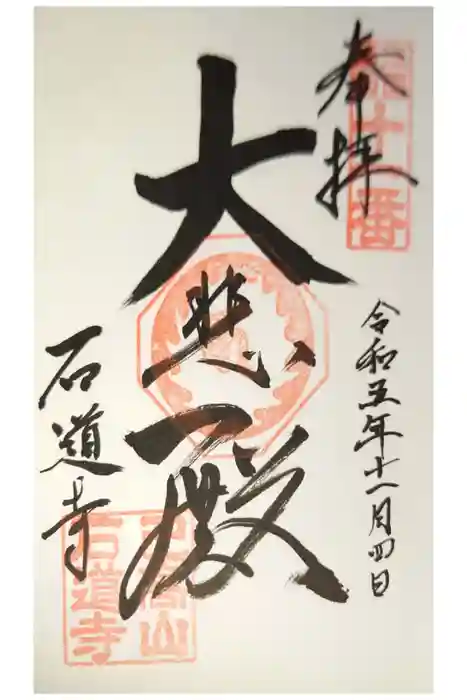 奉拝
令和五年十一月四日
大悲殿
石道寺
石道寺